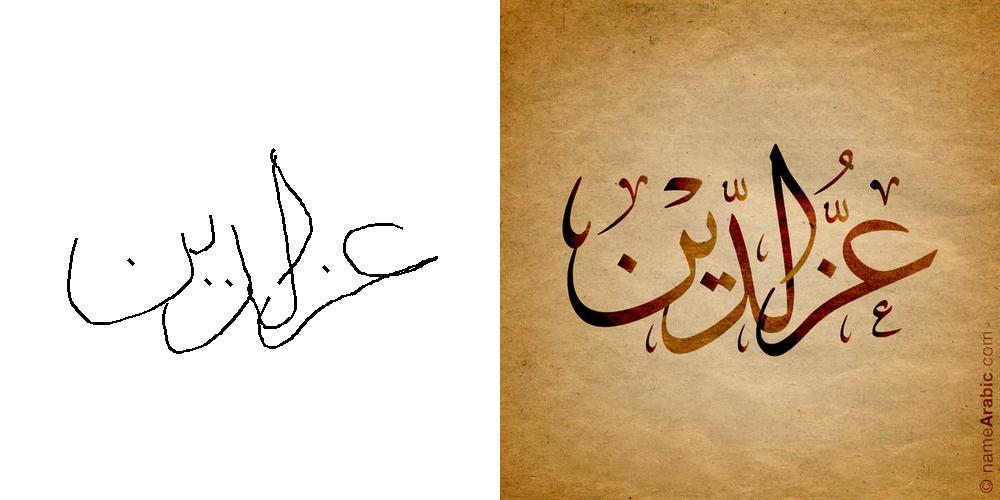 عز الدين
عِزُّ الدِّيْن
© nameArabic.com